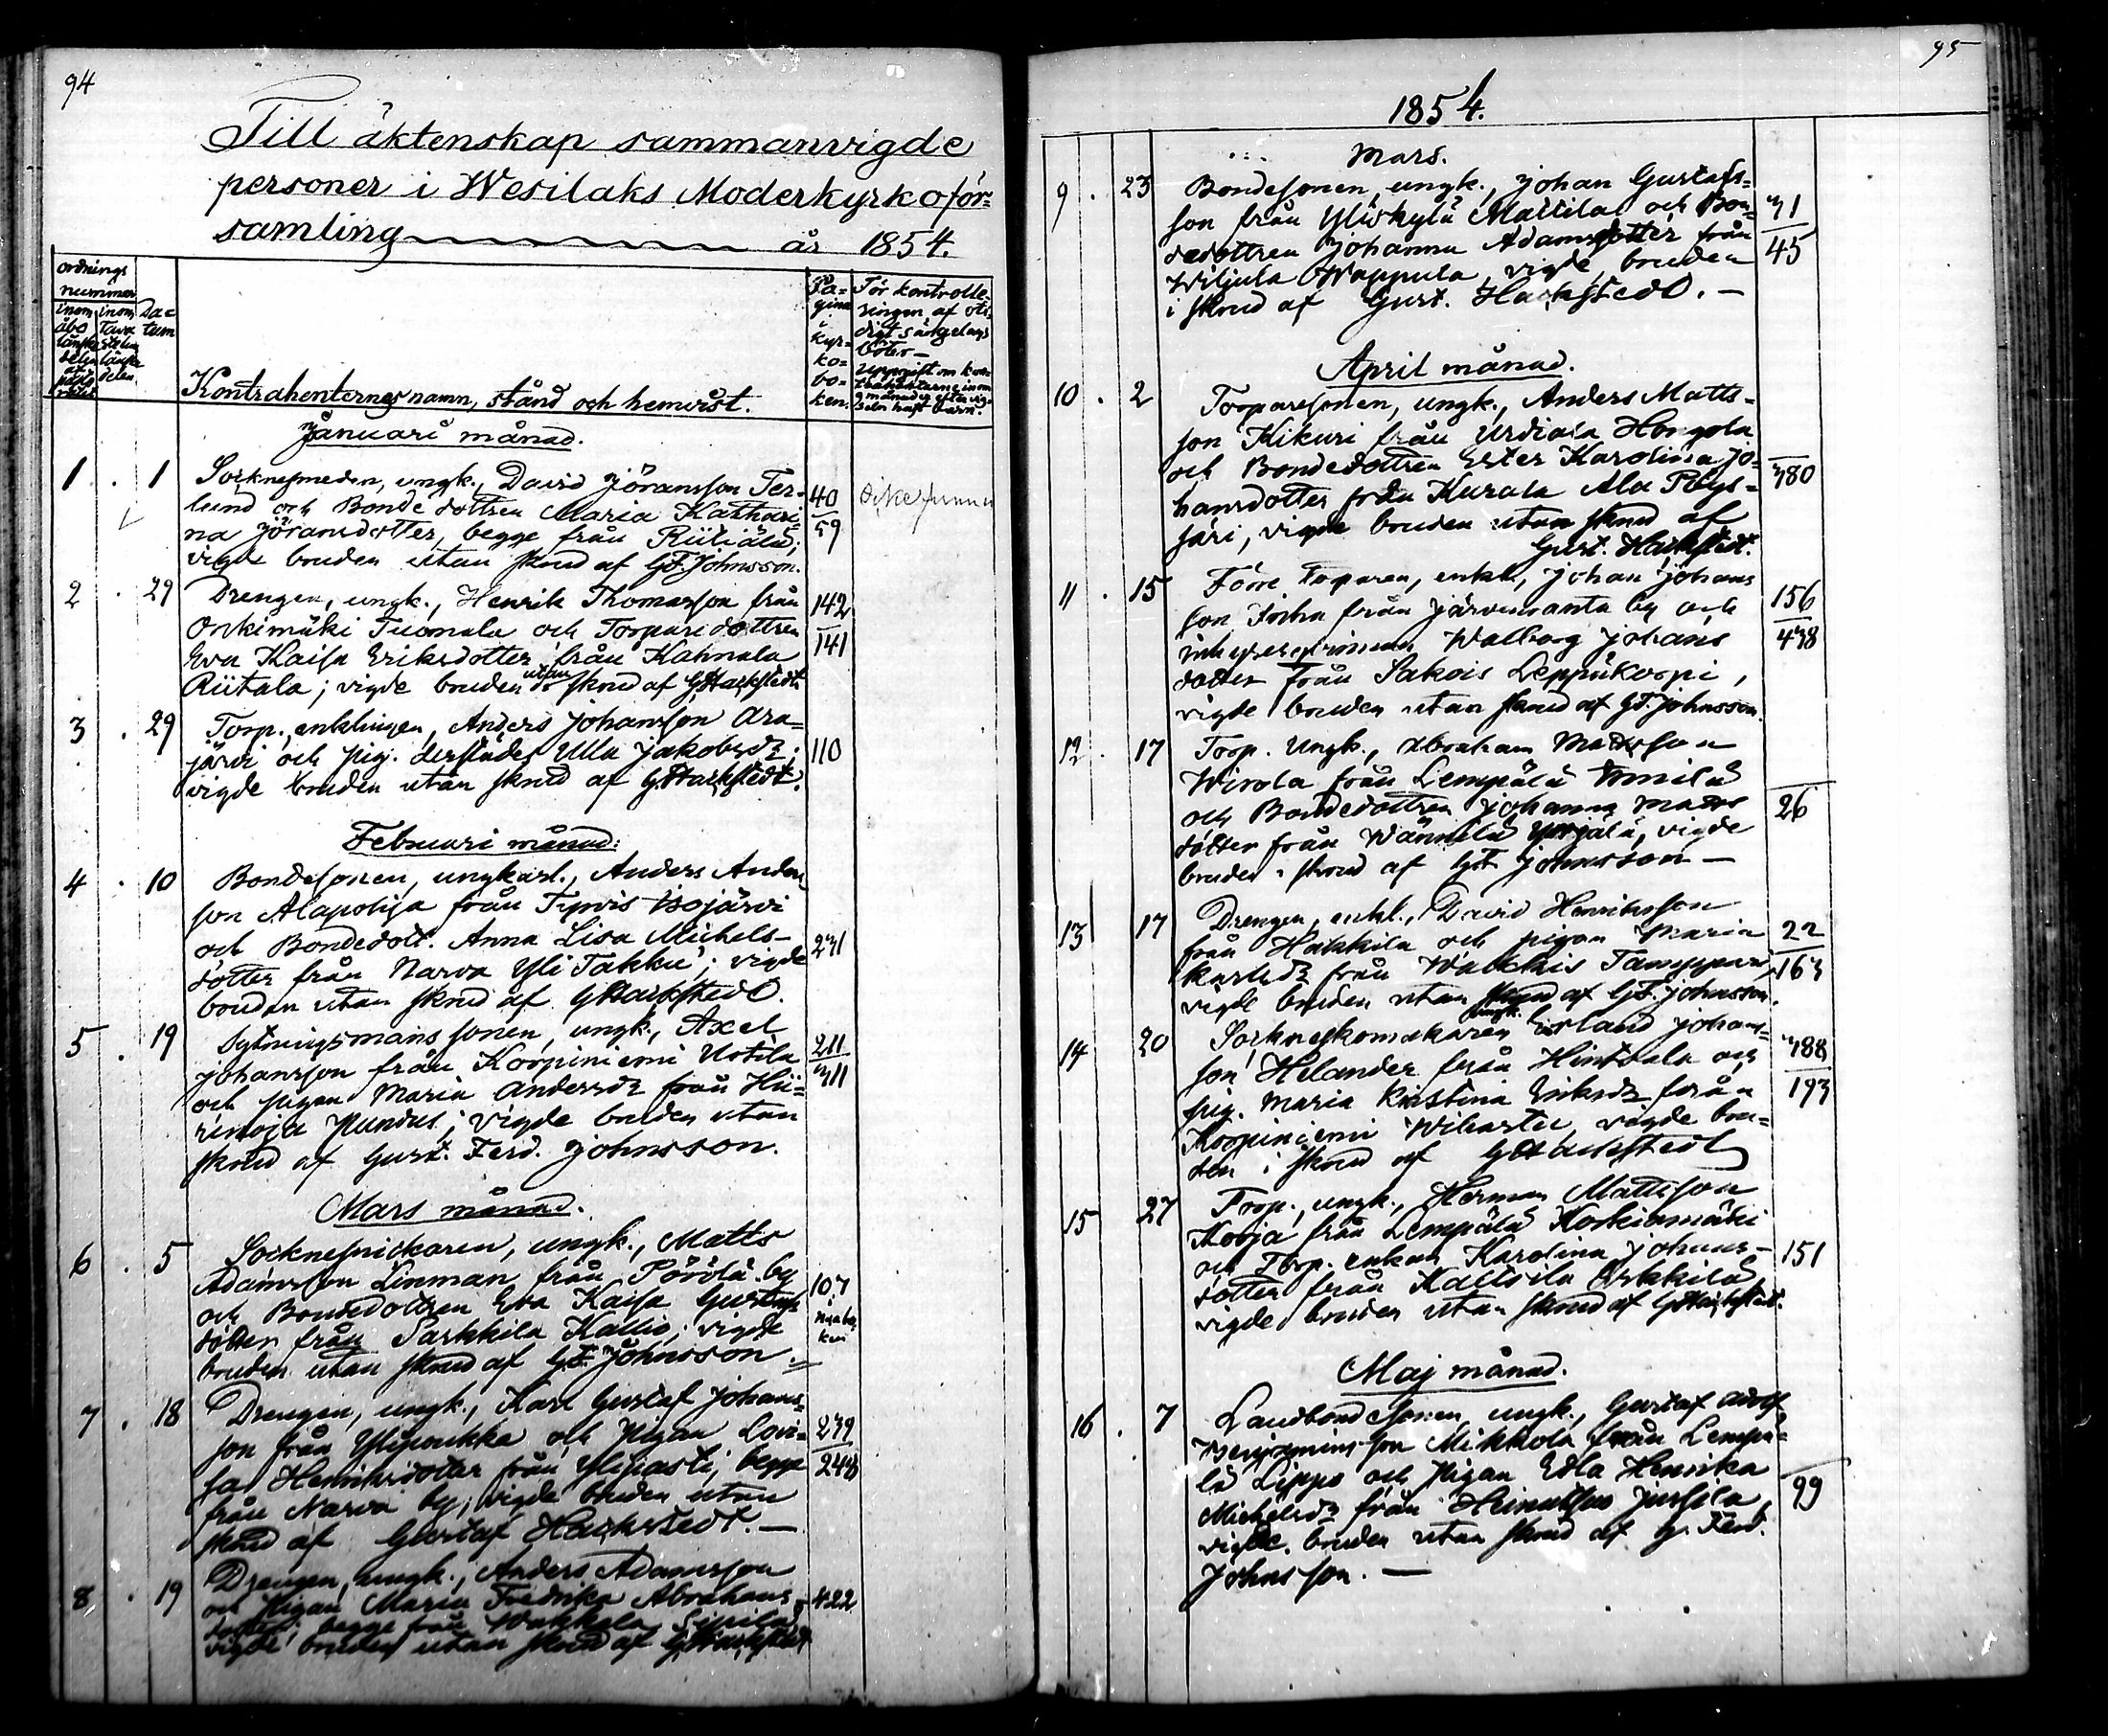 94
Till äktenskap sammanvigde
personer i Wesilaks Moderkyrkoför=
samling år 1854.
ordnings
nummer
Da=
tum
Pa=
gina
i
kyr=
ko=
bo=
ken.
För kontrolle=
ringen af oti=
digt sängelags
böter —
Kontrahenternes namn, stånd och hemvist.
Januari månad.
1 . 1 Socknesmeden, ungk., David Jöransson Ter= 40
lund och Bondedottren Maria Kathari= 59
na Jöransdotter, begge från
vigde bruden utan skrud af G.F. Johnsson.
2 . 29 Drengen, ungk., Henrik Thomasson från 142
Onkimäki Tuomala och Torparedottren 141
Eva Kaisa Eriksdotter från Kahnala
Riitala; vigde bruden utan skrud af GHackstedt
3 . 29 Torp., enklingen, Anders Johansson Ara=
järvi och pig. derstädes Ulla Jakobsdr; 110
vigde bruden utan skrud af GHackstedt.
Februari månad:
4 . 10 Bondesonen, ungkarl., Anders Anders
son Alapohja från Tyrvis Isojärvi
och Bondedott. Anna Lisa Michels= 231
dotter från Narva Yli Takku; vigde
bruden utan skrud af GHackstedt.
5 . 19 Sytningsmanssonen, ungk., Axel 211
Johansson från Korpiniemi Uotila 311
och pigan Maria Andersdr från Hii=
rinoja Pundus; vigde bruden utan
skrud af Gust. Ferd. Johnsson.
Mars månad.
6 . 5 Socknesnickaren, ungk., Matts
Adamsson Linman från Pöörölä by 107
och Bondedottren Eva Kaisa Gustafs
dotter från Sarkkila Kallio; vigde
bruden utan skrud af G.F. Johnsson.
7 . 18 Drengen, ungk., Karl Gustaf Johans=
son från Ylipoukka och Pigan Lovi= 239
sa Henriksdotter från Ylipasti, begge 248
från Narva by; vigde bruden utan
skrud af Gustaf Hackstedt. —
8 . 19 Drengen, ungk., Anders Adamsson
och Pigan Maria Fredrika Abrahams= 422
dotter; begge från Wakkala Sipilä,
vigde bruden utan skrud af GHackstedt
95
1854.
Mars.
9 . 23 Bondesonen, ungk., Johan Gustafs=
son från Yliskylä Mattila och Bon= 31
dedottren Johanna Adamsdotter från 45
Wiljula Wappula, vigde bruden
i skrud af Gust. Hackstedt. —
April månad.
10 . 2 Torparesonen, ungk., Anders Matts=
son Kikuri från Urdiala Hongola
och Bondedottren Ester Karolina Jo= 380
hansdotter från Kurala Ala Pöys=
järi, vigde bruden utan skrud af
Gust. Hackstedt.
11 . 15 Förre Torparen, enkl., Johan Johans
son från Järvenranta by och 156
Walborg Johans 438
dotter från Sakois Leppäkorpi,
vigde bruden utan skrud af G.F. Johnsson.
12 . 17 Torp. Ungk., Abraham Mattsson
Wirola från Lempälä
och Bondedottren Johanna Matts 26
dotter från Wännilä Yrjälä, vigde
bruden i skrud af G.F Johnsson —
13 17 Drengen, enkl., David Henriksson
från Hakkila och pigan Maria 22
Karlsdr från Walkkis Tamppari 163
vigde bruden utan skrud af G.F. Johnsson.
14 20 Sockneskomakaren ungk. Erland Johans=
son Helander från Hintsala och 388
pig. Maria Kristina Eriksdr från 193
Korpiniemi Wihastu, vigde bru=
den i skrud af GHackstedt
15 27 Torp., ungk., Herman Mattsson
Korja från Lempälä Koskenmäki
och Torp. enkan Karolina Johans= 151
dotter från Kaltsila Erkkilä
vigde bruden utan skrud af GHackstedt.
Maj månad.
16 . 7 Landbondesonen, ungk., Gustaf Adolf
Benjaminsson Mikkola från Lempä=
lä Lippo och Pigan Edla Henrika 99
Michelsdr från Heinätsuo Jussila,
vigde bruden utan skrud af G. Ferd.
Johnsson. —